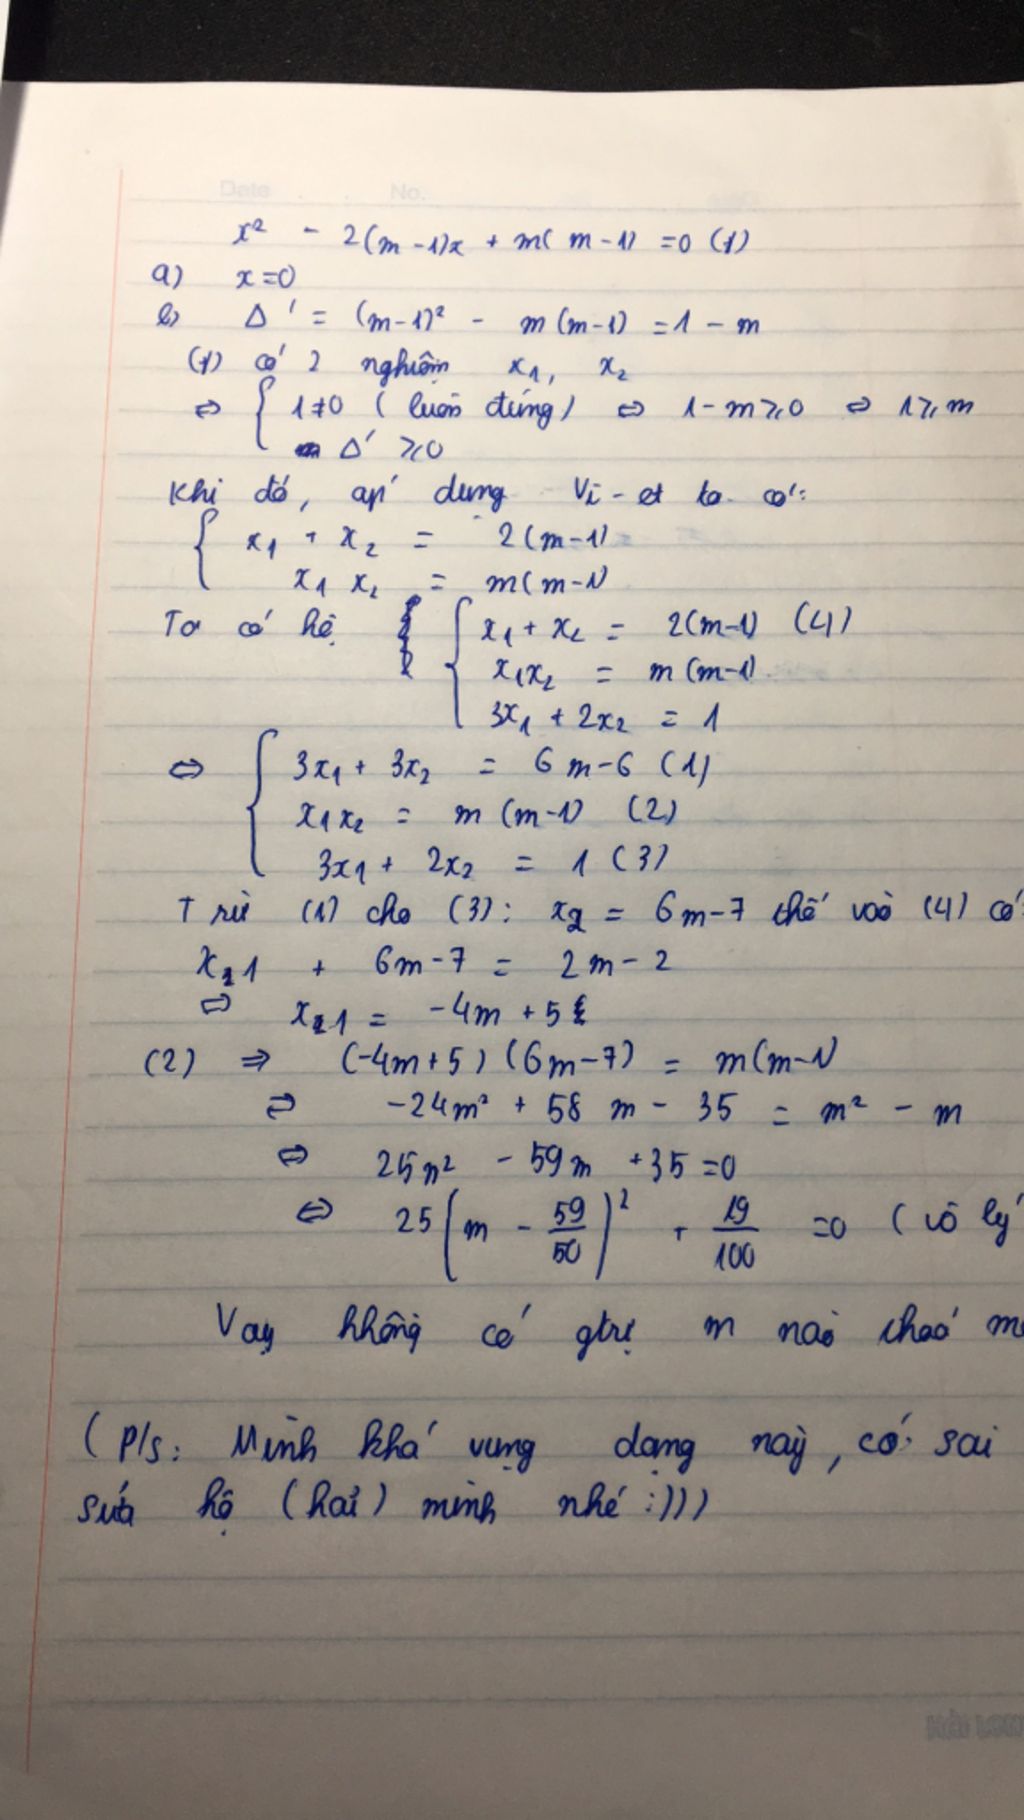 Date No.
x² - 2(m-1)x + m(m-1) = 0 (1)
a) x=0
b) Δ' = (m-1)² - m(m-1) = 1 - m
(1) có 2 nghiệm x₁, x₂
⇔ { 1≠0 (luôn đúng) ⇔ 1-m ≥ 0 ⇔ 1 ≥ m
Δ' ≥ 0
Khi đó, áp dụng Vi-et ta có:
{ x₁ + x₂ = 2(m-1)
x₁ x₂ = m(m-1)
Ta có hệ { x₁ + x₂ = 2(m-1) (4)
x₁x₂ = m(m-1)
3x₁ + 2x₂ = 1
⇔ { 3x₁ + 3x₂ = 6m-6 (1)
x₁x₂ = m(m-1) (2)
3x₁ + 2x₂ = 1 (3)
Trừ (1) cho (3): x₂ = 6m-7 thế vào (4) có:
x₁ + 6m-7 = 2m-2
⇔ x₁ = -4m + 5
(2) ⇒ (-4m+5)(6m-7) = m(m-1)
⇔ -24m² + 58m - 35 = m² - m
⇔ 25m² - 59m + 35 = 0
⇔ 25(m - 59/50)² + 19/100 = 0 (vô lý
Vậy không có gtrị m nào thoả
(P/s: Mình khá vụng dạng này, có sai
sửa hộ (hải) mình nhé :)))